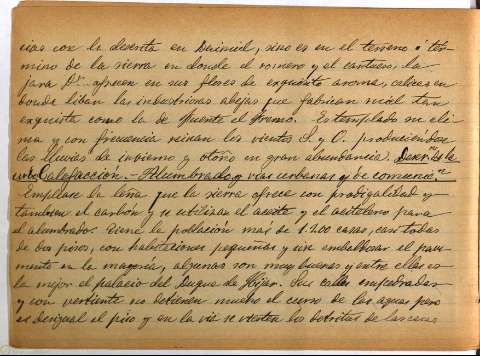 cias con la descrita en Daimiel, sino es en el terreno ó tér-
mino de la sierra en donde el romero y el cantueso, la
jara Dª. ofrecen en sus flores de exquisito aroma, calices en
donde liban las industriosas abejas que fabrican miel tan
exquisita como la de Fuente el Fresno. Es templado su cli-
ma y con frecuencia reinan los vientos S. y O. produciéndose
las lluvias de invierno y otoño en gran abundancia. de la
Calefaccion.- Alumbrado y vías urbanas y de comunic.ⁿ
Emplease la leña que la sierra ofrece con prodigalidad y
tambien el carbón y se utilizan el aceite y el acetileno para
el alumbrado. Tiene la población más de 1200 casas, casi todas
de dos pisos, con habitaciones pequeñas y sin embaldosar el pavi-
mento en la mayoría, algunas son muy buenas y entre ellas es
la mejor el palacio del Duque de Híjar. Sus calles empedradas
y con vertiente no detienen mucho el curso de las aguas pero
es desigual el piso y en la vía se vierten los detritus de las casas